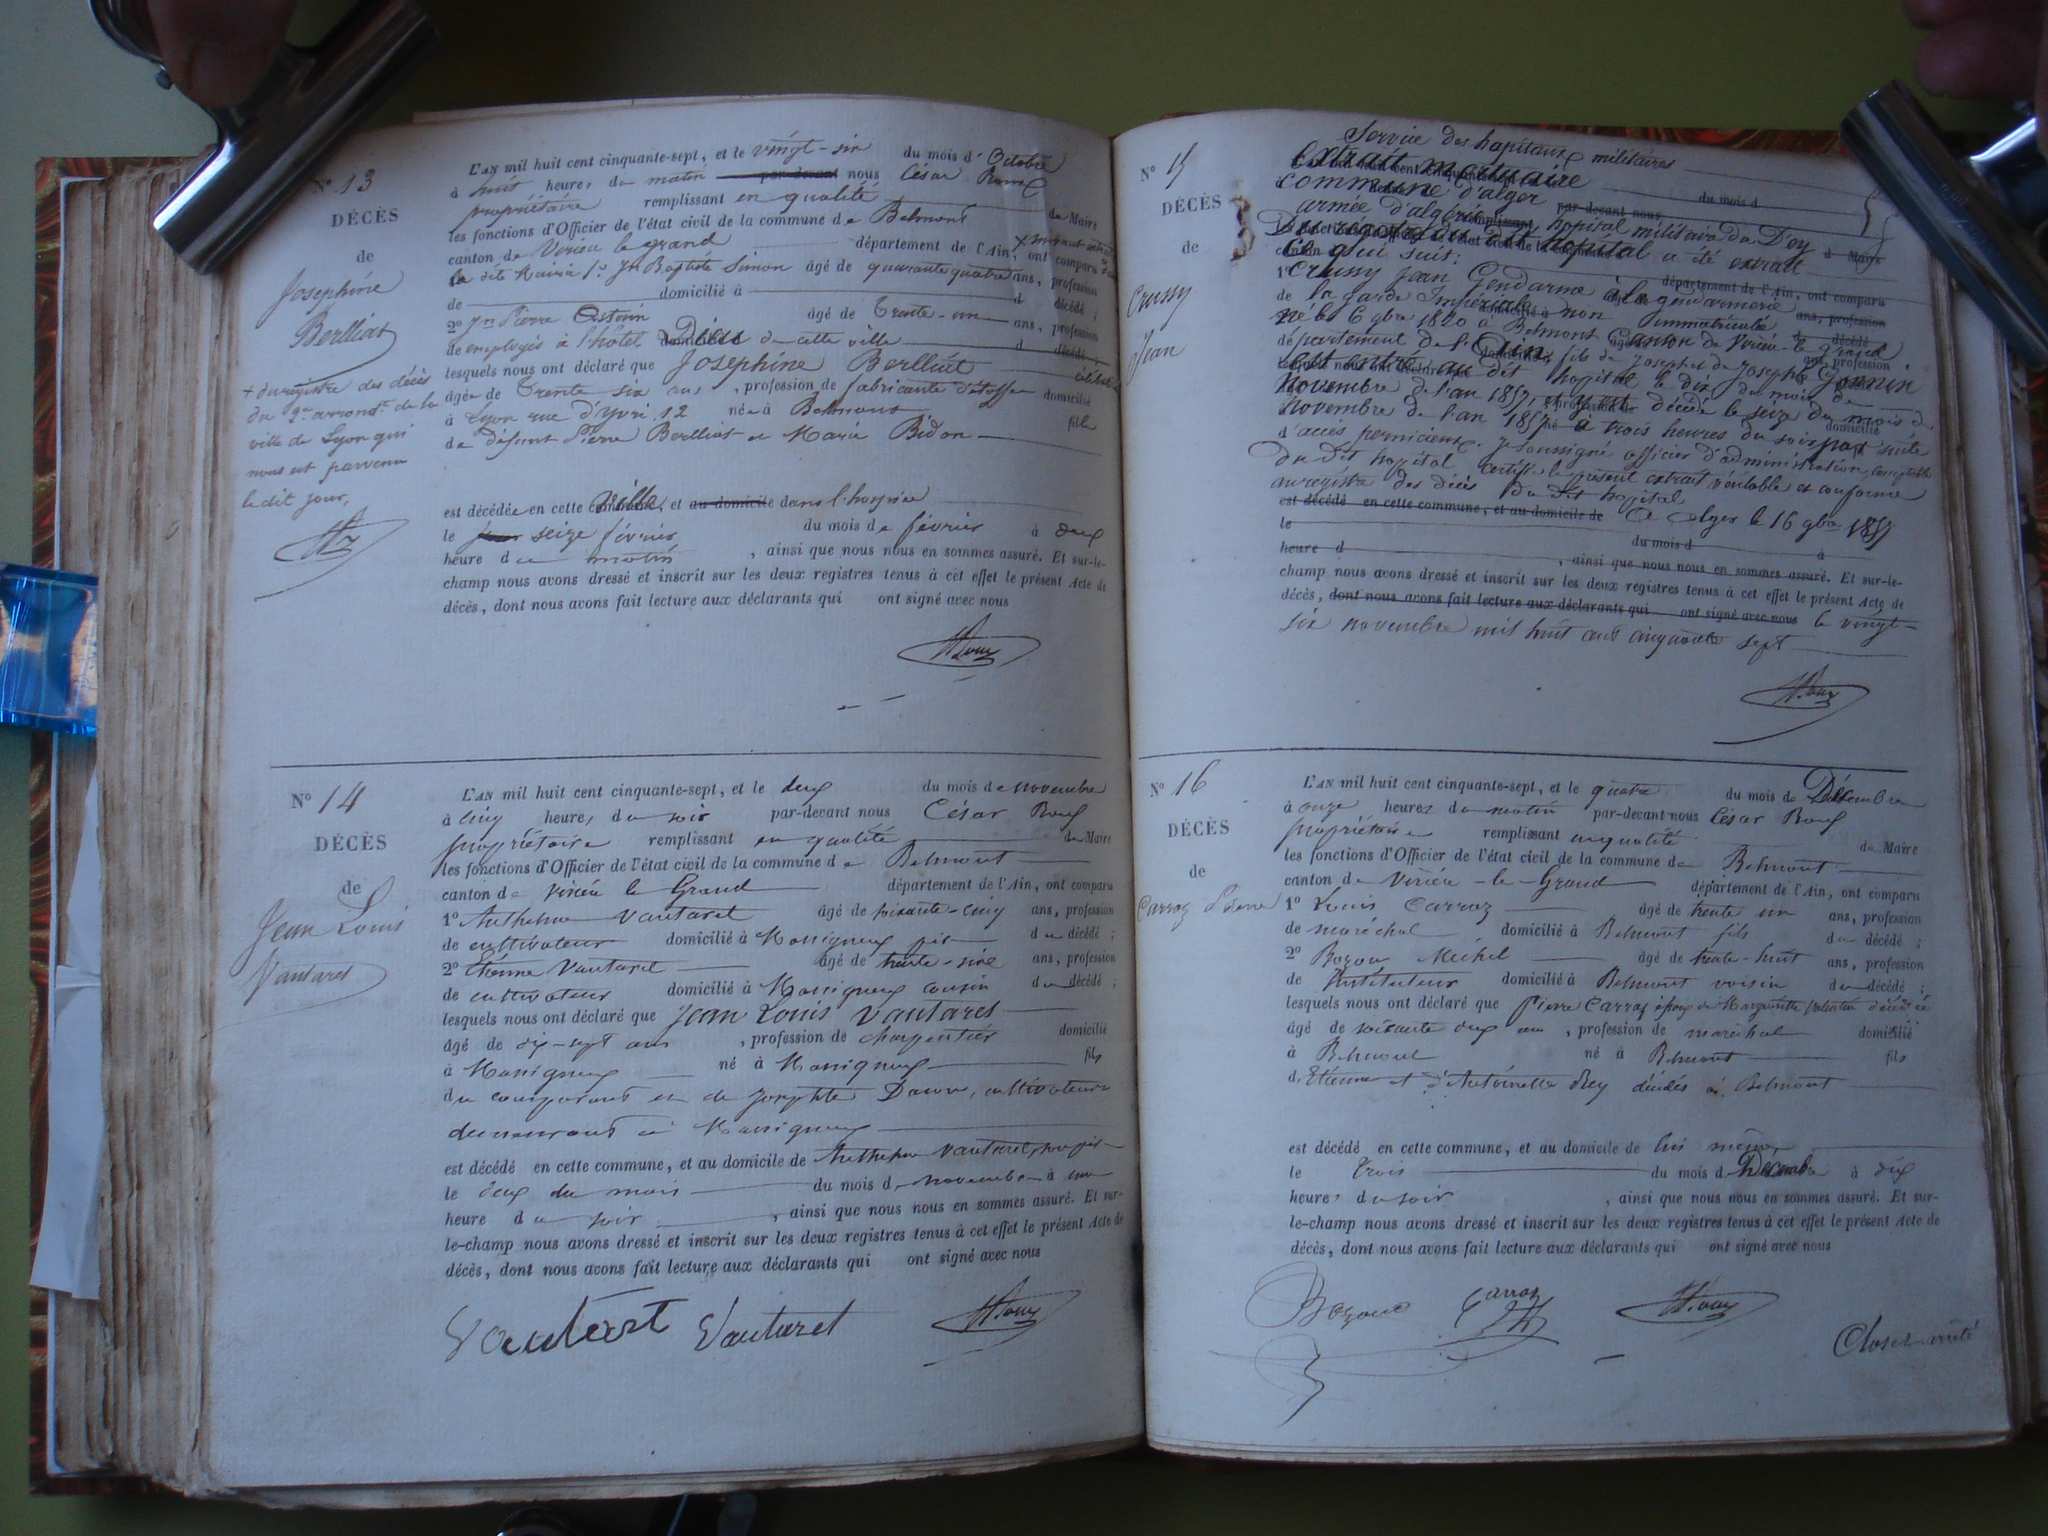 N° 13
DÉCÈS
de
Joséphine
Berlliat
+ du registre des décès
du 2e arrondt de la
ville de Lyon qui
nous est parvenu
le dit jour.
L'AN mil huit cent cinquante-sept, et le vingt-six du mois d'Octobre
à huit heures du matin par-devant nous César Roux
propriétaire remplissant en qualité de Maire
les fonctions d'Officier de l'état civil de la commune de Belmont
canton de Virieu le grand département de l'Ain, ont comparu
la dite Mairie 1° Jn Baptiste Simon âgé de quarante quatre ans, profession
de domicilié à d décédé ;
2° Jn Pierre âgé de Trente-un ans, profession
de employés à l'hôtel Dieu de cette ville d décédé ;
lesquels nous ont déclaré que Joséphine Berlliat
âgée de Trente six ans, profession de fabricante d'étoffes domicilié
à Lyon rue d'Yvri 12 née à Belmont fille
de défunt Pierre Berlliat et Marie Bidon
est décédée en cette ville, et au domicile dans l'hospice
le jour seize février du mois de février à deux
heure du matin, ainsi que nous nous en sommes assuré. Et sur-le-
champ nous avons dressé et inscrit sur les deux registres tenus à cet effet le présent Acte de
décès, dont nous avons fait lecture aux déclarants qui ont signé avec nous
N° 14
DÉCÈS
de
Jean Louis
Vautaret
L'AN mil huit cent cinquante-sept, et le deux du mois de novembre
à cinq heures du soir par-devant nous César Roux
propriétaire remplissant en qualité de Maire
les fonctions d'Officier de l'état civil de la commune de Belmont
canton de Virieu le Grand département de l'Ain, ont comparu
1° Anthelme Vautaret âgé de soixante-cinq ans, profession
de cultivateur domicilié à Massigneux père du décédé ;
2° Etienne Vautaret âgé de trente-six ans, profession
de cultivateur domicilié à Massigneux cousin du décédé ;
lesquels nous ont déclaré que Jean Louis Vautaret
âgé de dix-sept ans, profession de charpentier domicilié
à Massigneux né à Massigneux fils
du comparant et de Josephte cultivateurs
demeurant à Massigneux
est décédé en cette commune, et au domicile de Anthelme Vautaret, son père
le deux du mois du mois de novembre à une
heure du soir, ainsi que nous nous en sommes assuré. Et sur-
le-champ nous avons dressé et inscrit sur les deux registres tenus à cet effet le présent Acte de
décès, dont nous avons fait lecture aux déclarants qui ont signé avec nous
Vautaret Vautaret Roux
N° 15
DÉCÈS
de
Crussy
Jean
Service des hôpitaux militaires
Extrait mortuaire
commune d'alger
armée d'algérie hôpital militaire du Dey
Du registre du dit hopital a été extrait
ce qui suit :
Crussy Jean Gendarme à la gendarmerie
de la garde Impériale non immatriculé
né le 6 9bre 1820 à Belmont Canton de Virieu-le-grand
département de l'Ain, fils de Joseph et de Josephte Gonnin
est entré au dit hopital le dix du mois de
Novembre de l'an 1857, et y est décédé le seize du mois de
Novembre de l'an 1857 à trois heures du soir par suite
d'accès pernicieux. Je soussigné officier d'administration comptable
du dit hopital certifie le présent extrait véritable et conforme
au registre des décès du dit hopital
est décédé en cette commune, et au domicile de A Alger le 16 9bre 1857
le du mois d à
heure d, ainsi que nous nous en sommes assuré. Et sur-le-
champ nous avons dressé et inscrit sur les deux registres tenus à cet effet le présent Acte de
décès, dont nous avons fait lecture aux déclarants qui ont signé avec nous le vingt-
six novembre mil huit cent cinquante sept
N° 16
DÉCÈS
de
Carraz Pierre
L'AN mil huit cent cinquante-sept, et le quatre du mois de Décembre
à onze heures du matin par-devant nous César Roux
propriétaire remplissant en qualité de Maire
les fonctions d'Officier de l'état civil de la commune de Belmont
canton de Virieu-le-Grand département de l'Ain, ont comparu
1° Louis Carraz âgé de trente un ans, profession
de maréchal domicilié à Belmont fils du décédé ;
2° Bozon Michel âgé de trente-huit ans, profession
de Instituteur domicilié à Belmont voisin du décédé ;
lesquels nous ont déclaré que Pierre Carraz époux de Marguerite décédée
âgé de soixante deux ans, profession de maréchal domicilié
à Belmont né à Belmont fils
d'Etienne et d'Antoinette Rey décédés à Belmont
est décédé en cette commune, et au domicile de lui même
le trois du mois de Décembre à dix
heures du soir, ainsi que nous nous en sommes assuré. Et sur-
le-champ nous avons dressé et inscrit sur les deux registres tenus à cet effet le présent Acte de
décès, dont nous avons fait lecture aux déclarants qui ont signé avec nous
Carraz Roux
Clos et arrêté